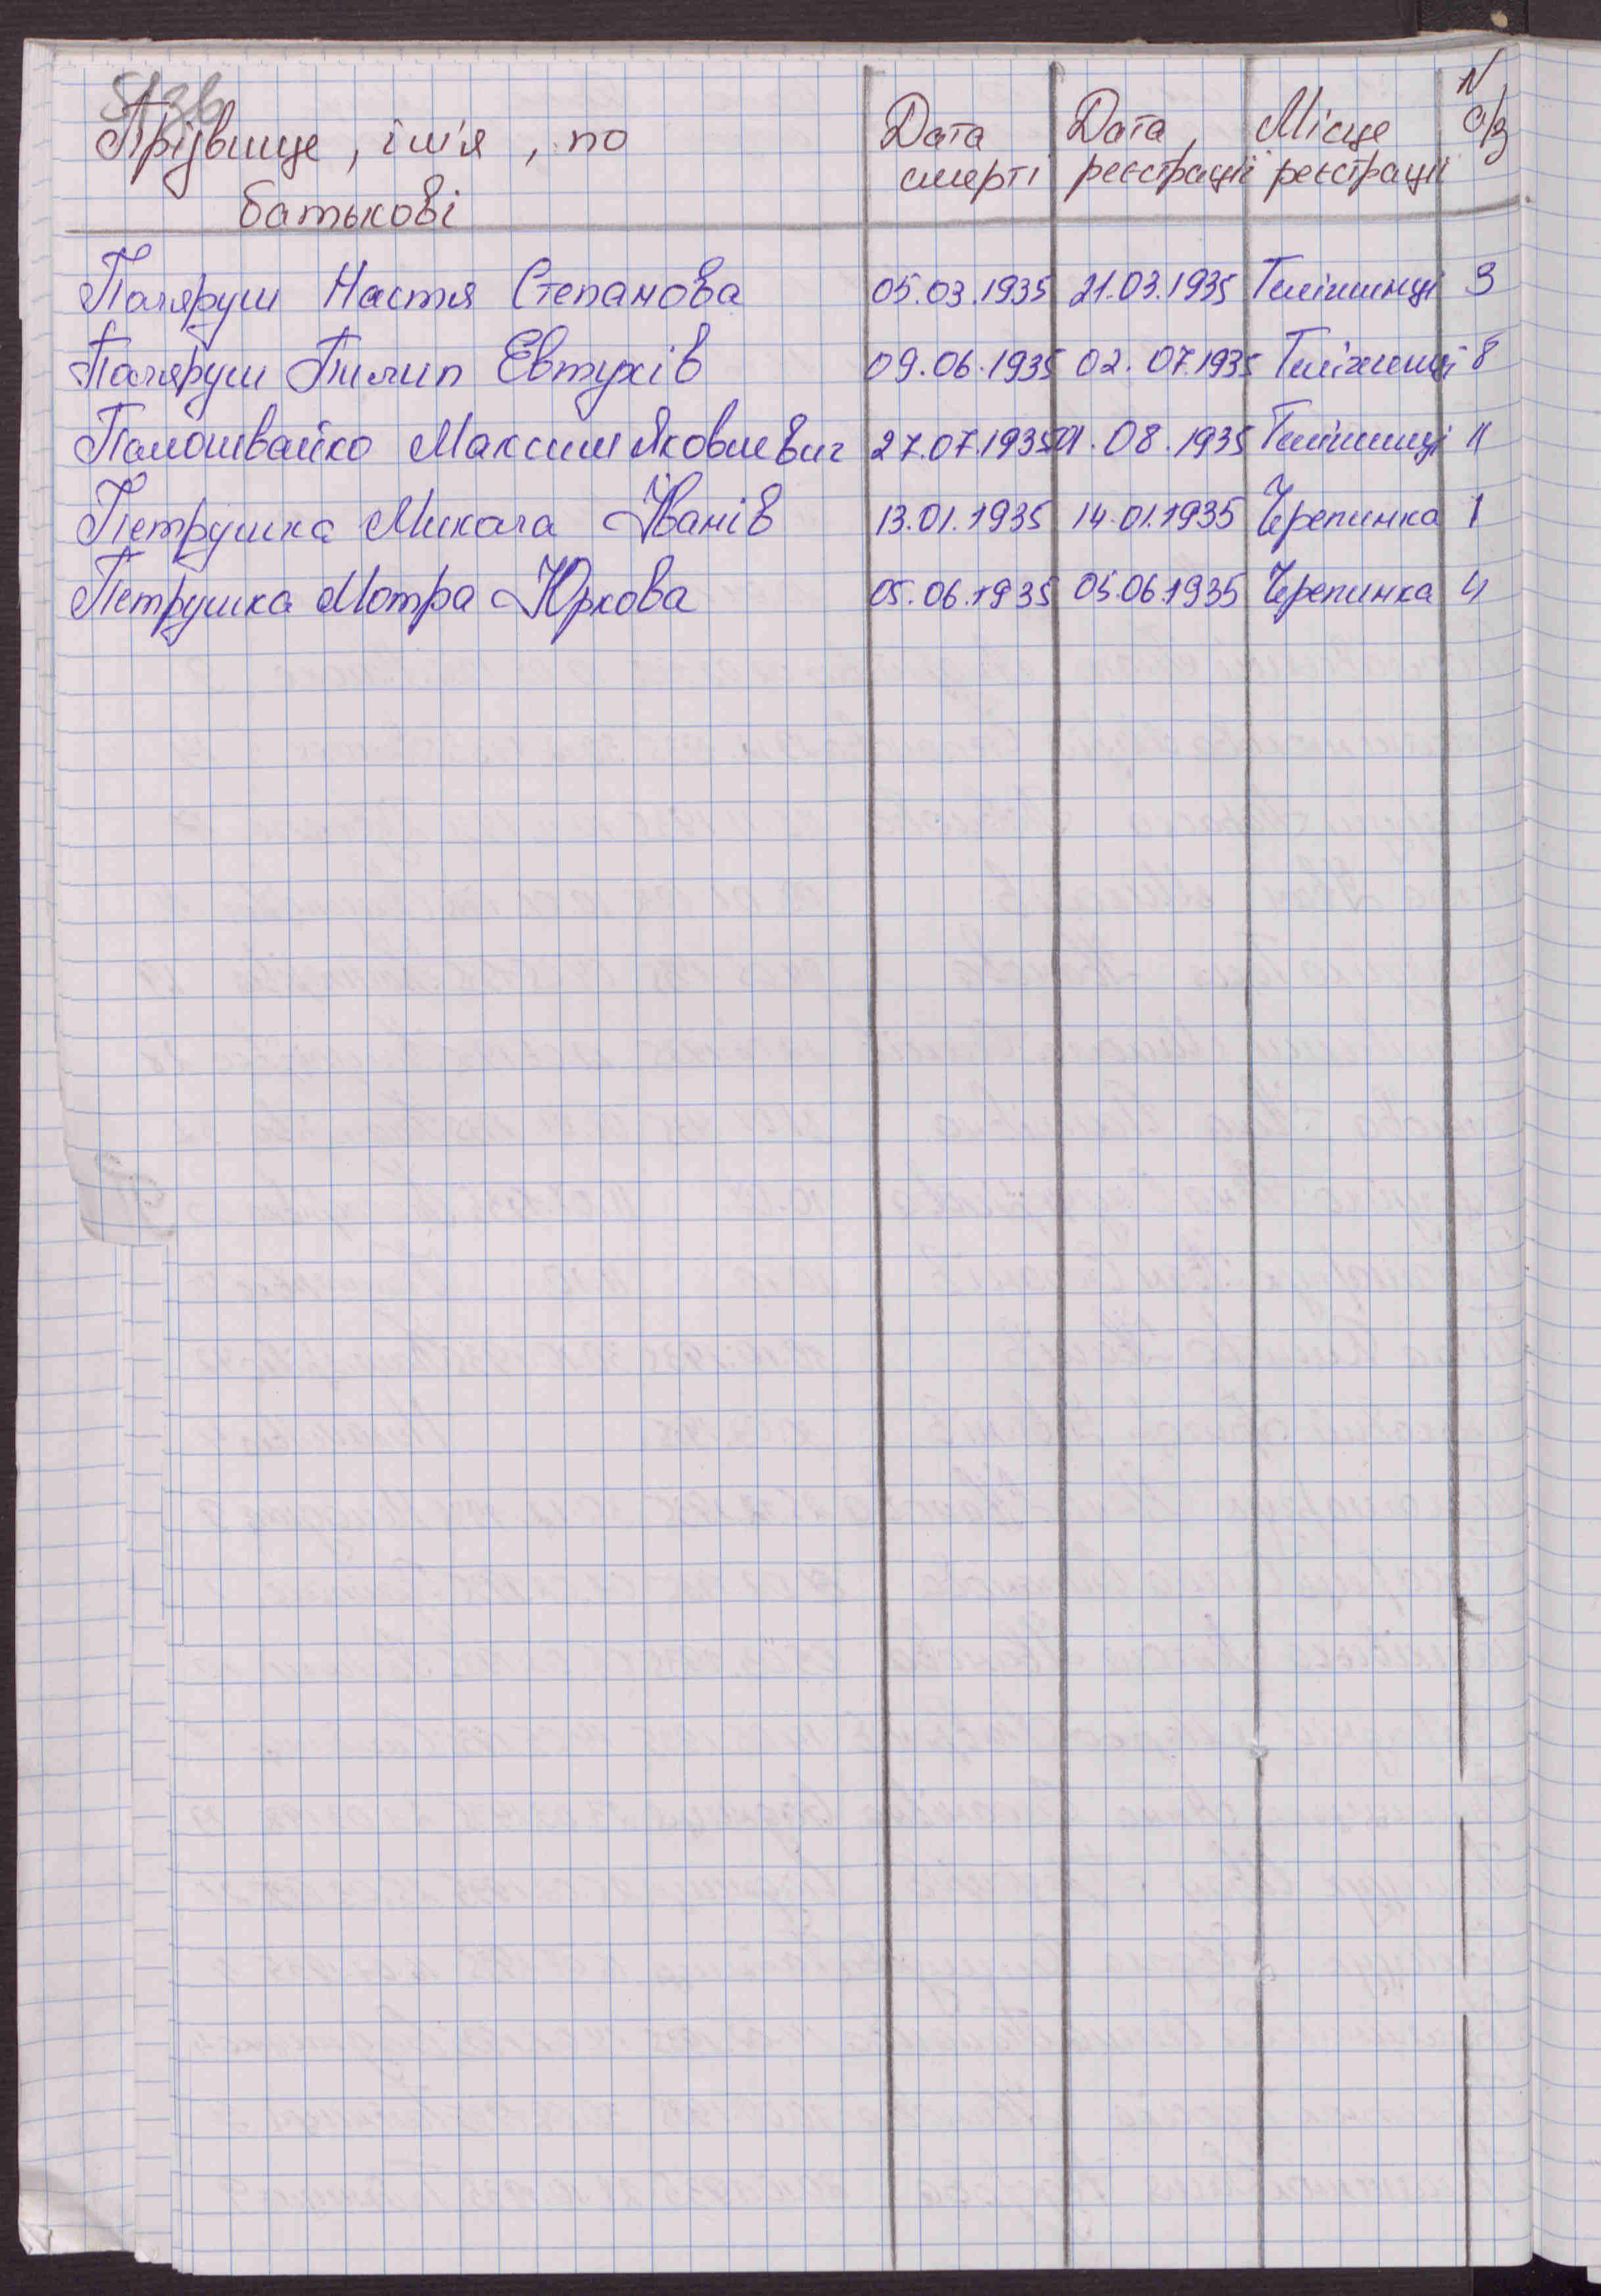 Прізвище, ім'я, по батькові Дата смерті Дата реєстрації Місце реєстрації N а/з
Паляруш Настя Степанова 05.03.1935 21.03.1935 Теліжинці 3
Паляруш Пилип Евтухів 09.06.1935 02.07.1935 Теліжинці 8
Паломвайко Максим Яковлевич 27.07.1935 01.08.1935 Теліжинці 11
Петрушка Микола Іванів 13.01.1935 14.01.1935 Черепинка 1
Петрушка Мотра Юркова 05.06.1935 05.06.1935 Черепинка 4